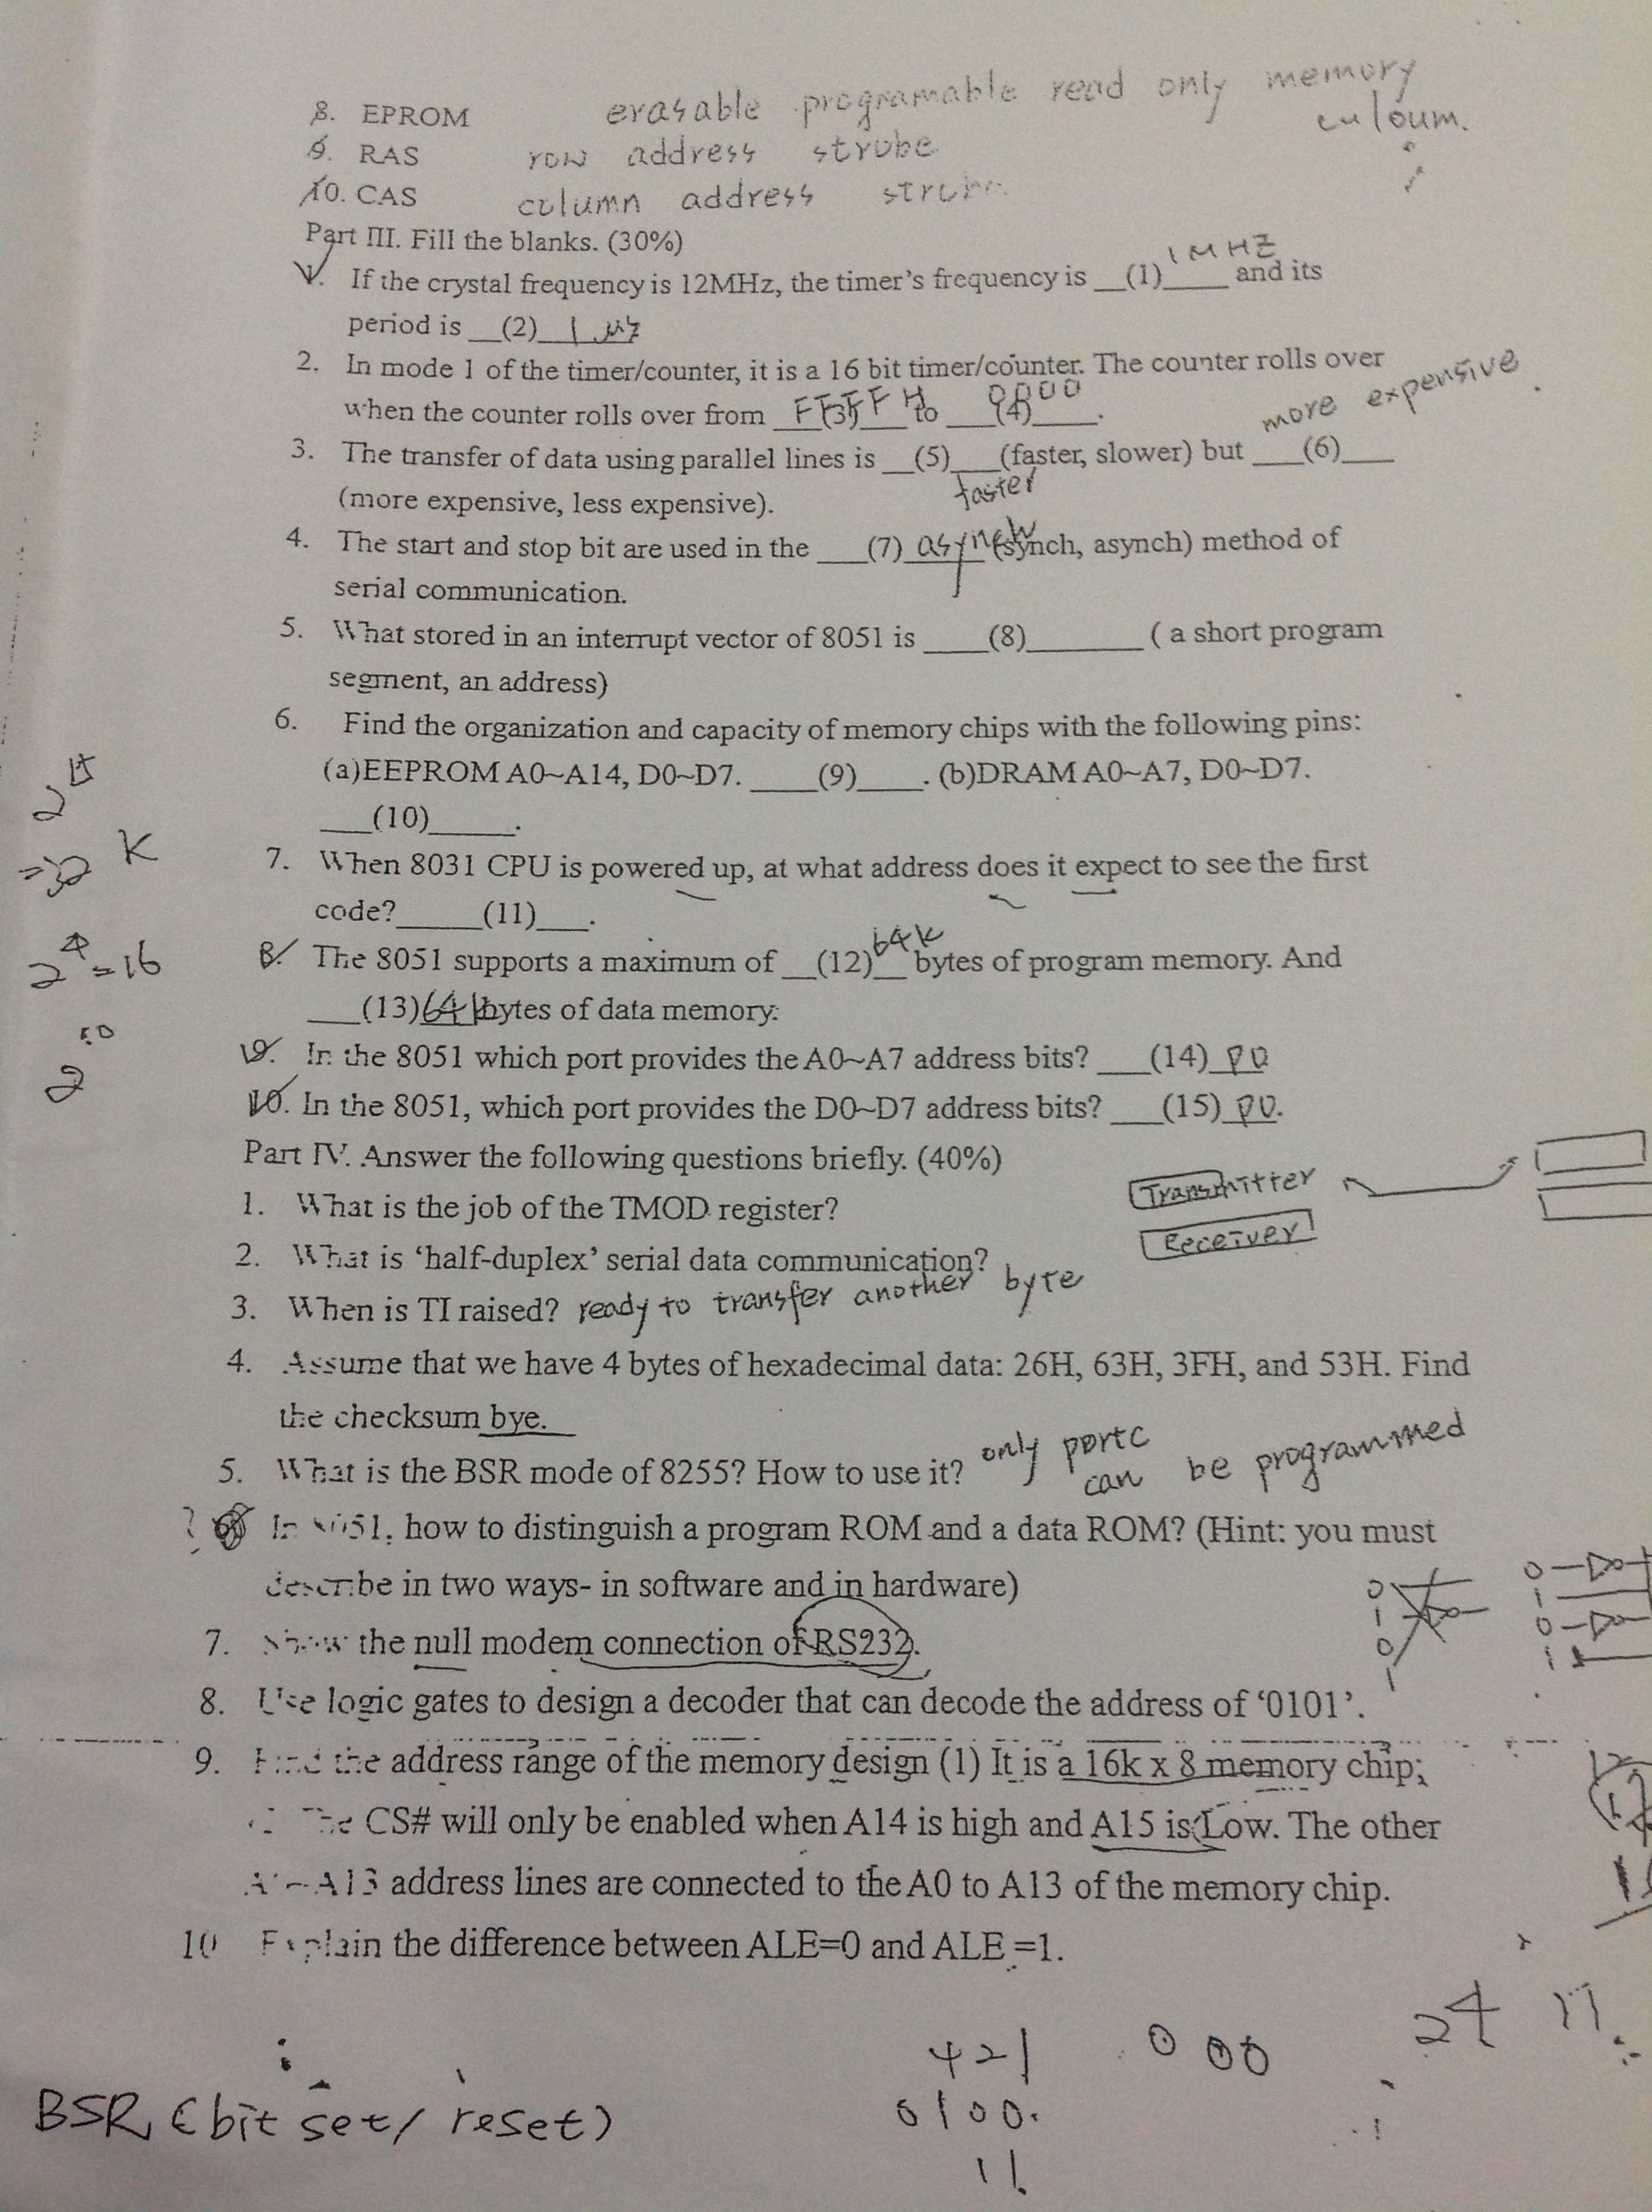 8. EPROM erasable programable read only memory
culoum.
9. RAS row address strobe
10. CAS column address strobe
Part III. Fill the blanks. (30%)
1. If the crystal frequency is 12MHz, the timer's frequency is __(1)____ 1MHZ and its
period is __(2)__
2. In mode 1 of the timer/counter, it is a 16 bit timer/counter. The counter rolls over
when the counter rolls over from ___(3)___ FFFFH to ___(4)____ 0000.
more expensive
3. The transfer of data using parallel lines is __(5)___(faster, slower) but ___(6)___
faster
(more expensive, less expensive).
4. The start and stop bit are used in the ___(7)_____(synch, asynch) method of
serial communication.
5. What stored in an interrupt vector of 8051 is ____(8)_______ ( a short program
segment, an address)
6. Find the organization and capacity of memory chips with the following pins:
(a)EEPROM A0~A14, D0~D7. ____(9)____. (b)DRAM A0~A7, D0~D7.
___(10)_____.
K
7. When 8031 CPU is powered up, at what address does it expect to see the first
code?_____(11)___.
2^4=16
8. The 8051 supports a maximum of __(12)__ 64k bytes of program memory. And
___(13) 64k bytes of data memory.
9. In the 8051 which port provides the A0~A7 address bits? ___(14) P0
10. In the 8051, which port provides the D0~D7 address bits? ___(15) P0.
Part IV. Answer the following questions briefly. (40%)
Transmitter
1. What is the job of the TMOD register?
Receiver
2. What is 'half-duplex' serial data communication?
3. When is TI raised? ready to transfer another byte
4. Assume that we have 4 bytes of hexadecimal data: 26H, 63H, 3FH, and 53H. Find
the checksum bye.
5. What is the BSR mode of 8255? How to use it? only portc can be programmed
In 8051, how to distinguish a program ROM and a data ROM? (Hint: you must
describe in two ways- in software and in hardware)
0 1 0 1
0 1 0 1
7. Show the null modem connection of RS232.
8. Use logic gates to design a decoder that can decode the address of '0101'.
9. Find the address range of the memory design (1) It is a 16k x 8 memory chip;
The CS# will only be enabled when A14 is high and A15 is Low. The other
A13 address lines are connected to the A0 to A13 of the memory chip.
10 Explain the difference between ALE=0 and ALE =1.
2^4
421 0 00
BSR (bit set/ reset) 0100.
11.